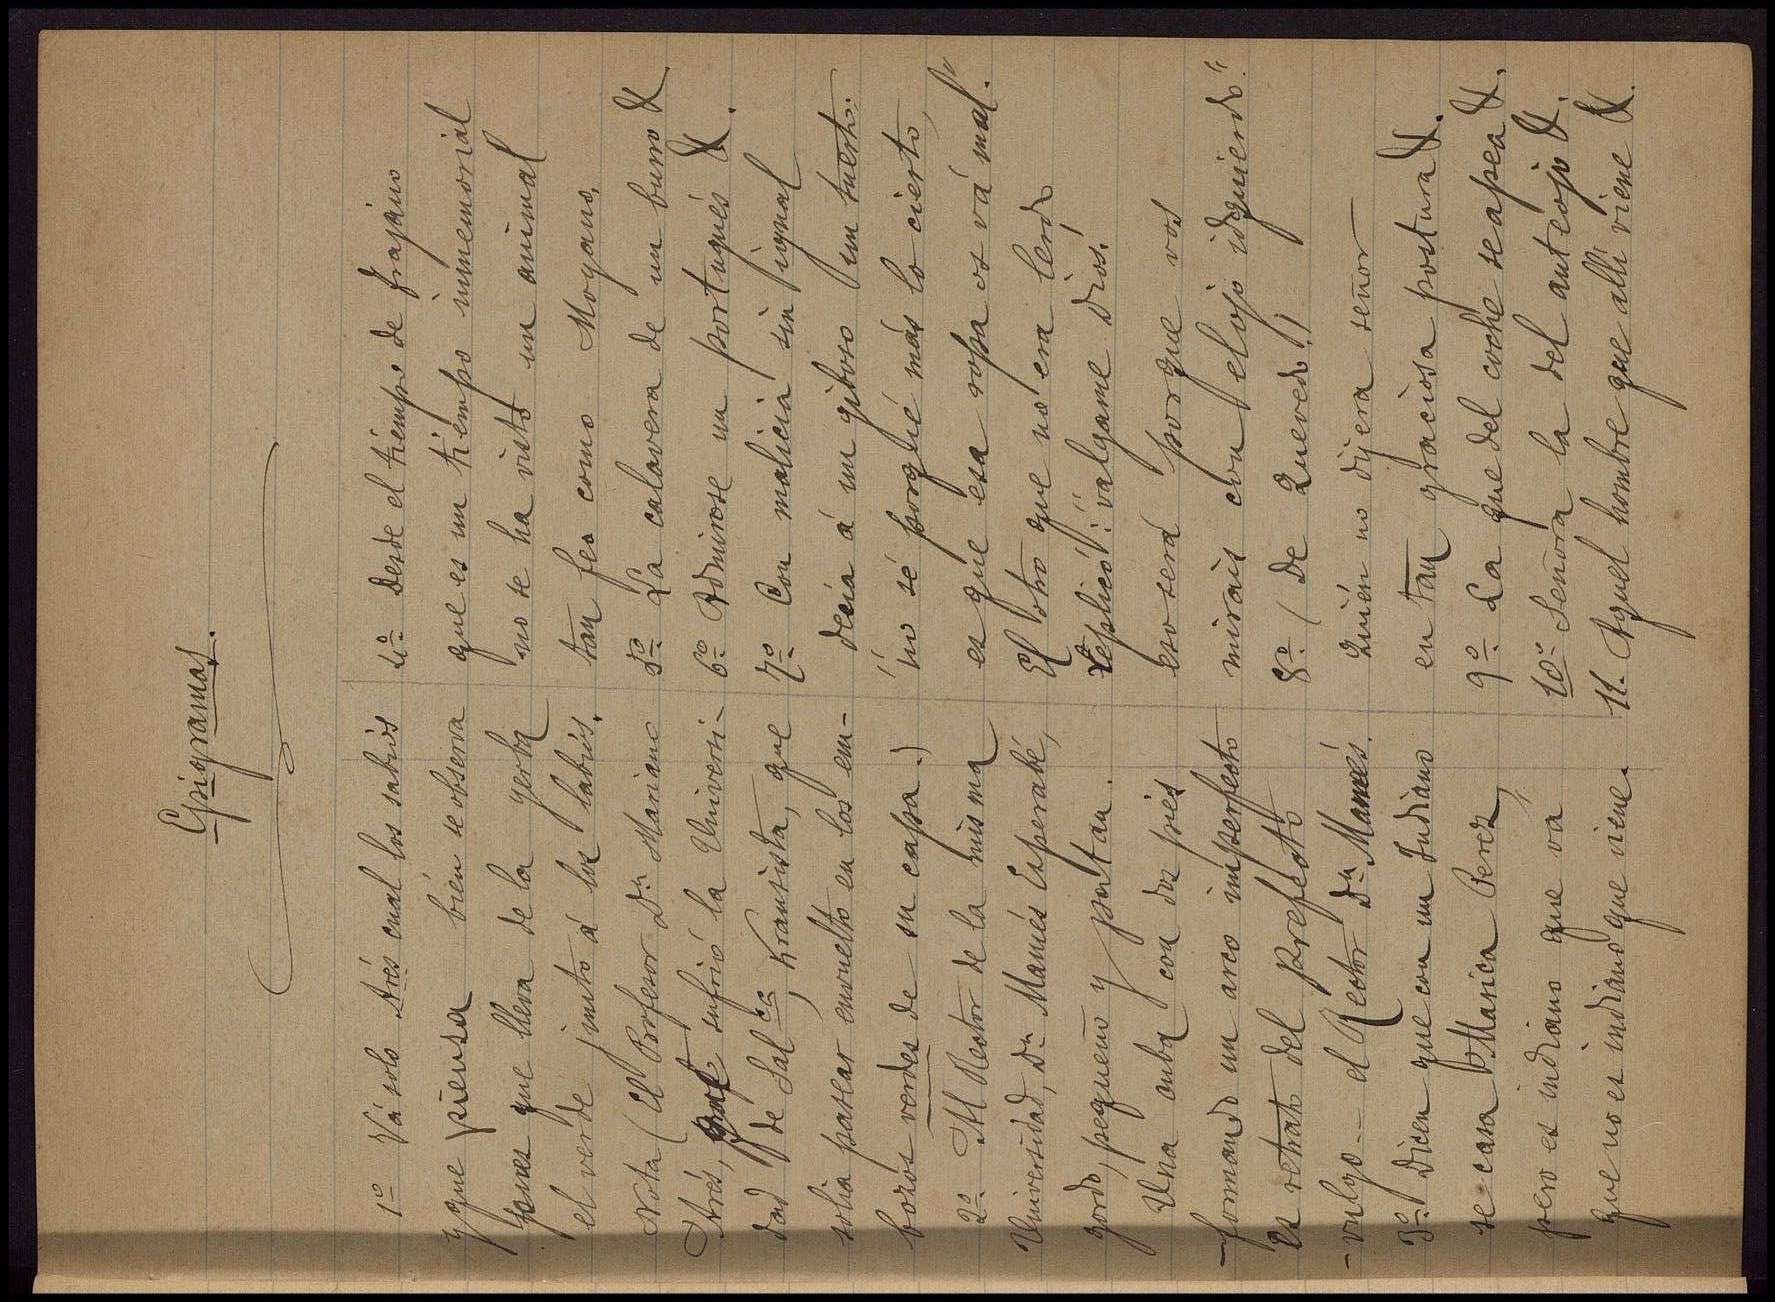 Epigramas.
1º Vá solo Arés cual los sabios
y que piensa bien se observa
pues que lleva de la yerba
el verde junto á los labios.
Nota (El Profesor Dn Mariano
Arés, que sufrió la Universi-
dad de Salca, Krausista, que
solia pasear envuelto en los em-
bozos verdes de su capa.)
2º Al Rector de la misma
Universidad, Dn Mamés Esperabé,
gordo, pequeño y
Una cuba con dos piés
formando un arco imperfecto
Es retrato del prefecto
-vulgo- el Rector Dn Mamés.
3º Dicen que con un Indiano
se casa Marica Perez,
pero es indiano que vá
que no es indiano que viene.
4º Desde el tiempo de Trajano
que es un tiempo inmemorial
no se ha visto un animal
tan feo como Moyano.
5º La calavera de un burro &.
6º Admirose un portugués &.
7º Con malicia sin igual
decia á un giboso un tuerto:
"no sé porqué más lo cierto,
es que esa ropa os vá mal."
El otro que no era lerdo
replicó: "valgame Dios!
eso será porque vos
mirais con el ojo idquierdo".
8º (De Quevedo)
Quién no dijera señor
en tan graciosa postura &.
9º La que del coche se apea &.
10º Señora la del anteojo &.
11. Aquel hombre que alli viene &.